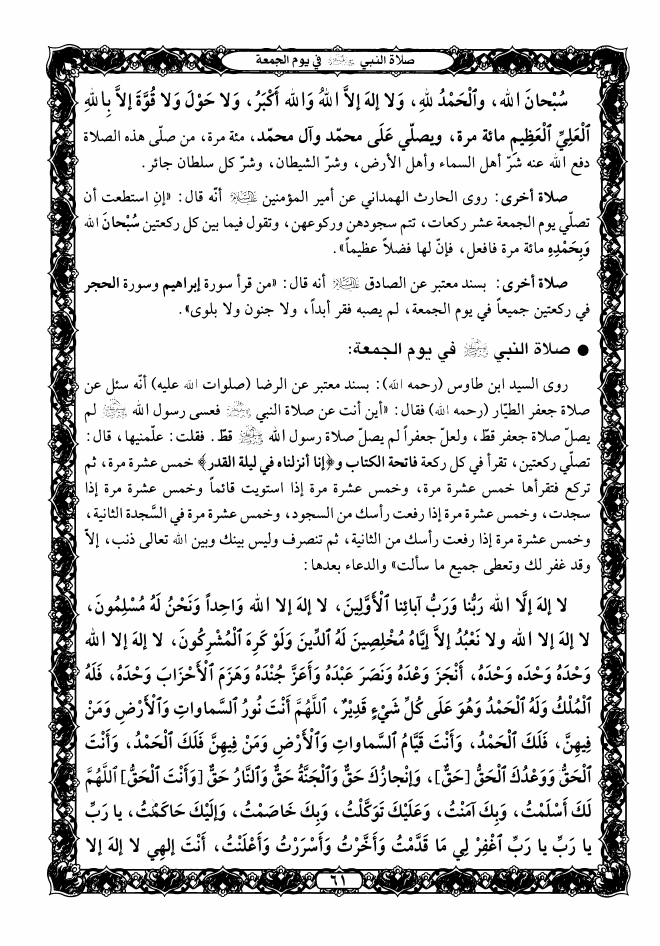 صلاة النبي ﷺ في يوم الجمعة
سُبْحانَ الله، والْحَمْدُ للهِ، وَلا إلهَ إلاَّ اللهُ وَالله أكْبَرُ، وَلا حَوْلَ وَلا قُوَّةَ إلاَّ بِاللهِ
الْعَلِيِّ الْعَظِيمِ مائة مرة، ويصلّي عَلَى محمّد وآل محمّد، مئة مرة، من صلّى هذه الصلاة
دفع الله عنه شَرّ أهل السماء وأهل الأرض، وشرّ الشيطان، وشرّ كل سلطان جائر.
صلاة أخرى: روى الحارث الهمداني عن أمير المؤمنين عليه السلام أنّه قال: «إن استطعت أن
تصلّي يوم الجمعة عشر ركعات، تتم سجودهن وركوعهن، وتقول فيما بين كل ركعتين سُبْحانَ الله
وَبِحَمْدِهِ مائة مرة فافعل، فإنّ لها فضلاً عظيماً».
صلاة أخرى: بسند معتبر عن الصادق عليه السلام أنه قال: «من قرأ سورة إبراهيم وسورة الحجر
في ركعتين جميعاً في يوم الجمعة، لم يصبه فقر أبداً، ولا جنون ولا بلوى».
● صلاة النبي ﷺ في يوم الجمعة:
روى السيد ابن طاوس (رحمه الله): بسند معتبر عن الرضا (صلوات الله عليه) أنّه سئل عن
صلاة جعفر الطيّار (رحمه الله) فقال: «أين أنت عن صلاة النبي ﷺ فعسى رسول الله ﷺ لم
يصلّ صلاة جعفر قطّ، ولعلّ جعفراً لم يصلّ صلاة رسول الله ﷺ قطّ. فقلت: علّمنيها، قال:
تصلّي ركعتين، تقرأ في كل ركعة فاتحة الكتاب و﴿إنا أنزلناه في ليلة القدر﴾ خمس عشرة مرة، ثم
تركع فتقرأها خمس عشرة مرة، وخمس عشرة مرة إذا استويت قائماً وخمس عشرة مرة إذا
سجدت، وخمس عشرة مرة إذا رفعت رأسك من السجود، وخمس عشرة مرة في السَّجدة الثانية،
وخمس عشرة مرة إذا رفعت رأسك من الثانية، ثم تنصرف وليس بينك وبين الله تعالى ذنب، إلاّ
وقد غفر لك وتعطى جميع ما سألت» والدعاء بعدها:
لا إلهَ إلَّا الله رَبُّنا وَرَبُّ آبائِنا الْأَوَّلِينَ، لا إلهَ إلا الله وَاحِداً وَنَحْنُ لَهُ مُسْلِمُونَ،
لا إلهَ إلا الله ولا نَعْبُدُ إلاَّ إيَّاهُ مُخْلِصِينَ لَهُ الدِّينَ وَلَوْ كَرِهَ الْمُشْرِكُونَ، لا إلهَ إلا الله
وَحْدَهُ وَحْدَه وَحْدَهُ، أَنْجَزَ وَعْدَهُ وَنَصَرَ عَبْدَهُ وَأَعَزَّ جُنْدَهُ وَهَزَمَ الْأَحْزَابَ وَحْدَهُ، فَلَهُ
الْمُلْكُ وَلَهُ الْحَمْدُ وَهُوَ عَلَى كُلِّ شَيْءٍ قَدِيْرٌ، اللَّهُمَّ أَنْتَ نُورُ السَّماواتِ وَالْأَرْضِ وَمَنْ
فِيهِنَّ، فَلَكَ الْحَمْدُ، وَأَنْتَ قَيَّامُ السَّماواتِ وَالْأَرْضِ وَمَنْ فِيهِنَّ فَلَكَ الْحَمْدُ، وَأَنْتَ
الْحَقُّ وَوَعْدُكَ الْحَقُّ [حَقٌّ]، وَإنْجازُكَ حَقٌّ وَالْجَنَّةُ حَقٌّ وَالنَّارُ حَقٌّ [وَأَنْتَ الْحَقُّ] اللَّهُمَّ
لَكَ أَسْلَمْتُ، وَبِكَ آمَنْتُ، وَعَلَيْكَ تَوَكَّلْتُ، وَبِكَ خَاصَمْتُ، وَإلَيْكَ حَاكَمْتُ، يا رَبِّ
يا رَبِّ يا رَبِّ اغْفِرْ لِي مَا قَدَّمْتُ وَأَخَّرْتُ وَأَسْرَرْتُ وَأَعْلَنْتُ، أَنْتَ إلهِي لا إلهَ إلا
٦١